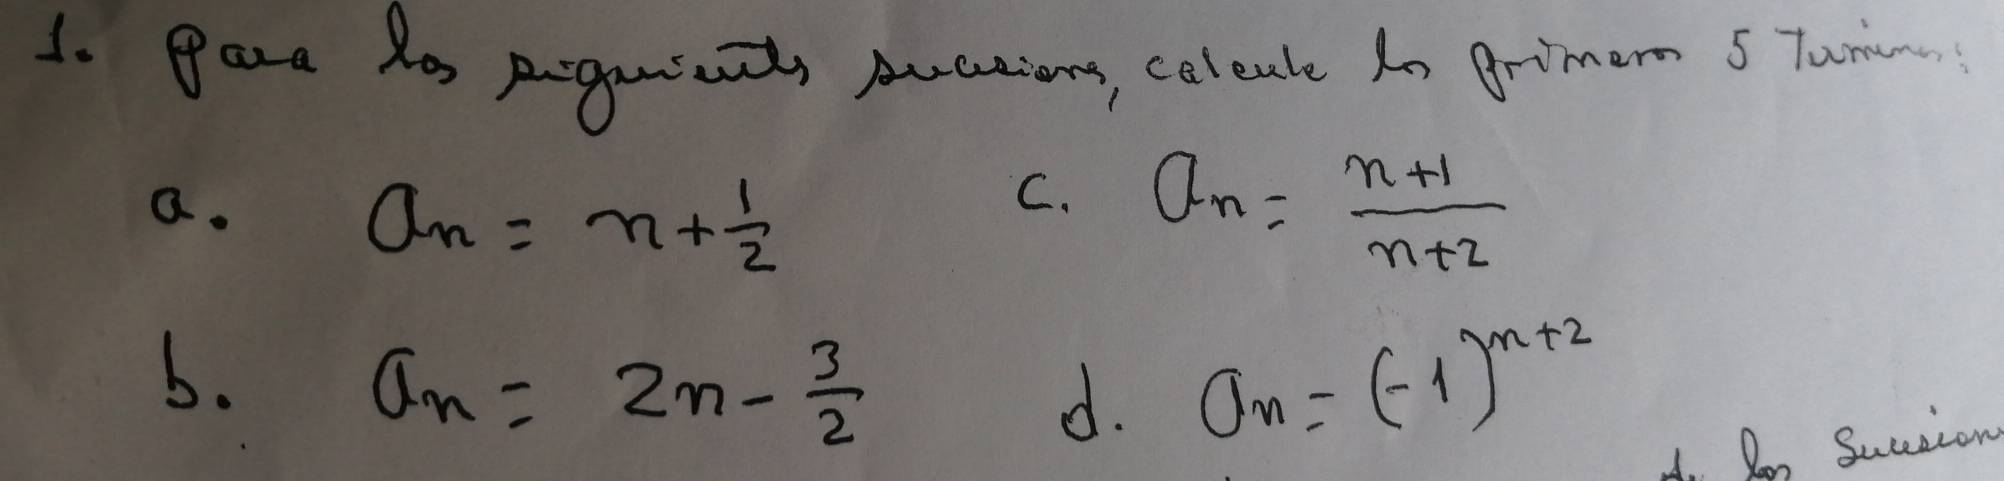 1. Para las siguientes sucesiones, calcule los primeros 5 Términos:
a. an = n + 1/2
c. an = n+1/n+2
b. an = 2n - 3/2
d. an = (-1)^n+2
de las Sucesion